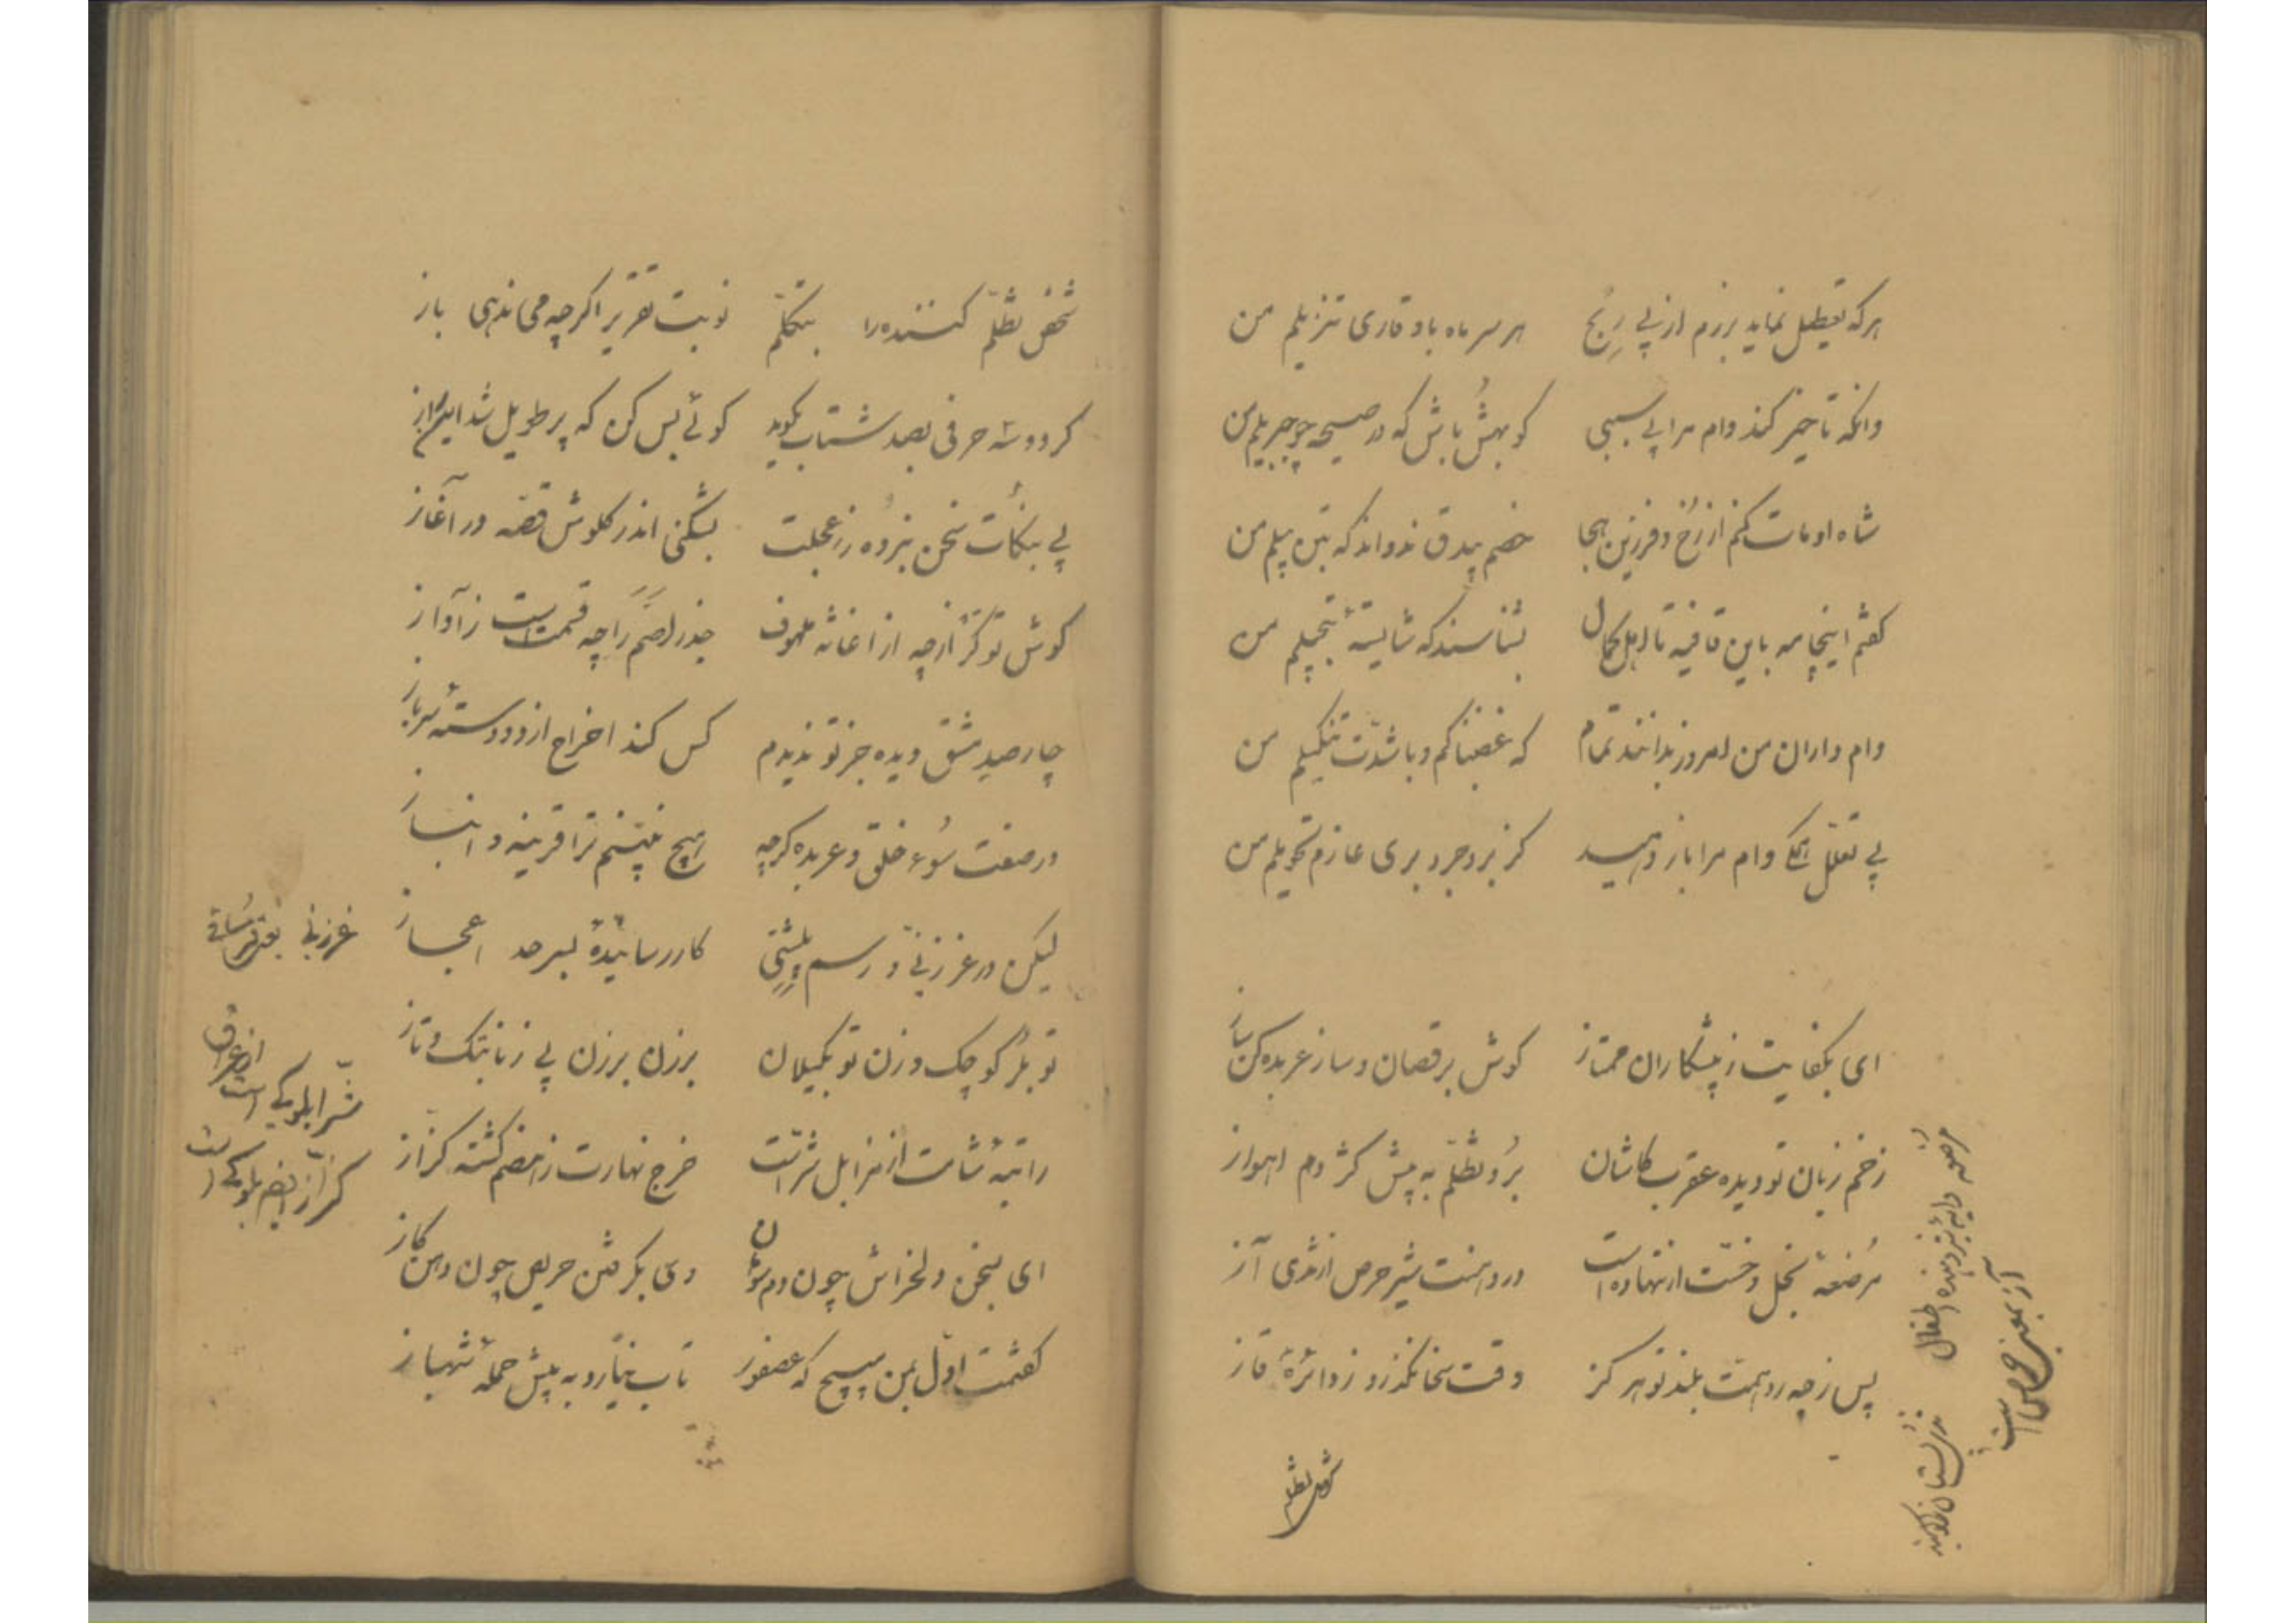 هرکه تعطیل نماید برزم از پی رنج   هر سر ماه باو قاری تنزیلم من
وانکه تاخیر کند وام مرا بی سببی   کو بهش باش که در صیحه چو جبریلم من
شاه او مات کنم از رخ و فرزین هجا   خصم بیدق ندواند که تن پیلم من
کفتم اینجامه باین قافیه تا اهل کمال   بشناسند که شایسته تبجیلم من
وام داران من امروز بدانند تمام   که غضبناکم و با شدت تنکیلم من
بی تعلل همکی وام مرا باز دهید   کز بروجرد بری عازم تحویلم من
ای بکفایت ز پیشکاران ممتاز   کوش برقصان و ساز عربده کن ساز
زخم زبان تو دیده عقرب کاشان   برد تظلم به پیش کژدم اهواز
مرضعه بخل و خست ار ننهاده است   در دهنت شیر حرص از ثدی آز
پس ز چه رو همت بلند تو هرکز   وقت سخا نکذرد ز دائره قاز
مرضعه دایه شیر دهنده اطفال
ثدی پستان را کویند
آز بمعنی حرص است
شخص تظلم
شخص تظلم کننده را بتکلم   نوبت تقریر اکر چه می ندهی باز
کر دو سه حرفی بصد شتاب بکوید   کوئی بس کن که پر طویل شد این راز
پی بنکات سخن نبرده ز عجلت   بشکنی اندر کلوش قصه در آغاز
کوش تو کر ار چه از اغاثه ملهوف   جذر اصم را چه قسمت است ز آواز
چار صد مشق دیده جز تو ندیدم   کس کند اخراج از دو دسته سرباز
در صفت سوء خلق و عربده کرچه   هیچ نبینم ترا قرینه و انباز
لیکن در غرزنی و رسم پلشتی   کار رسانیده بسرحد اعجاز
تو بکر کوچک و زن تو بکمیلان   برزن برزن پی زنا بتک و تاز
راتبه شامت از مزابل شراست   خرج نهارت ز هضم کشته کزاز
ای بسخن دلخراش چون دم سوهان   وی بکرفتن حریص چون دهن کاز
کفتمت اول بمن مپیچ که عصفور   تاب نیارد به پیش حمله شهباز
غرزنی بمعنی
شرا بلوکی است
از عراق
کزاز ایضا بلوکی است